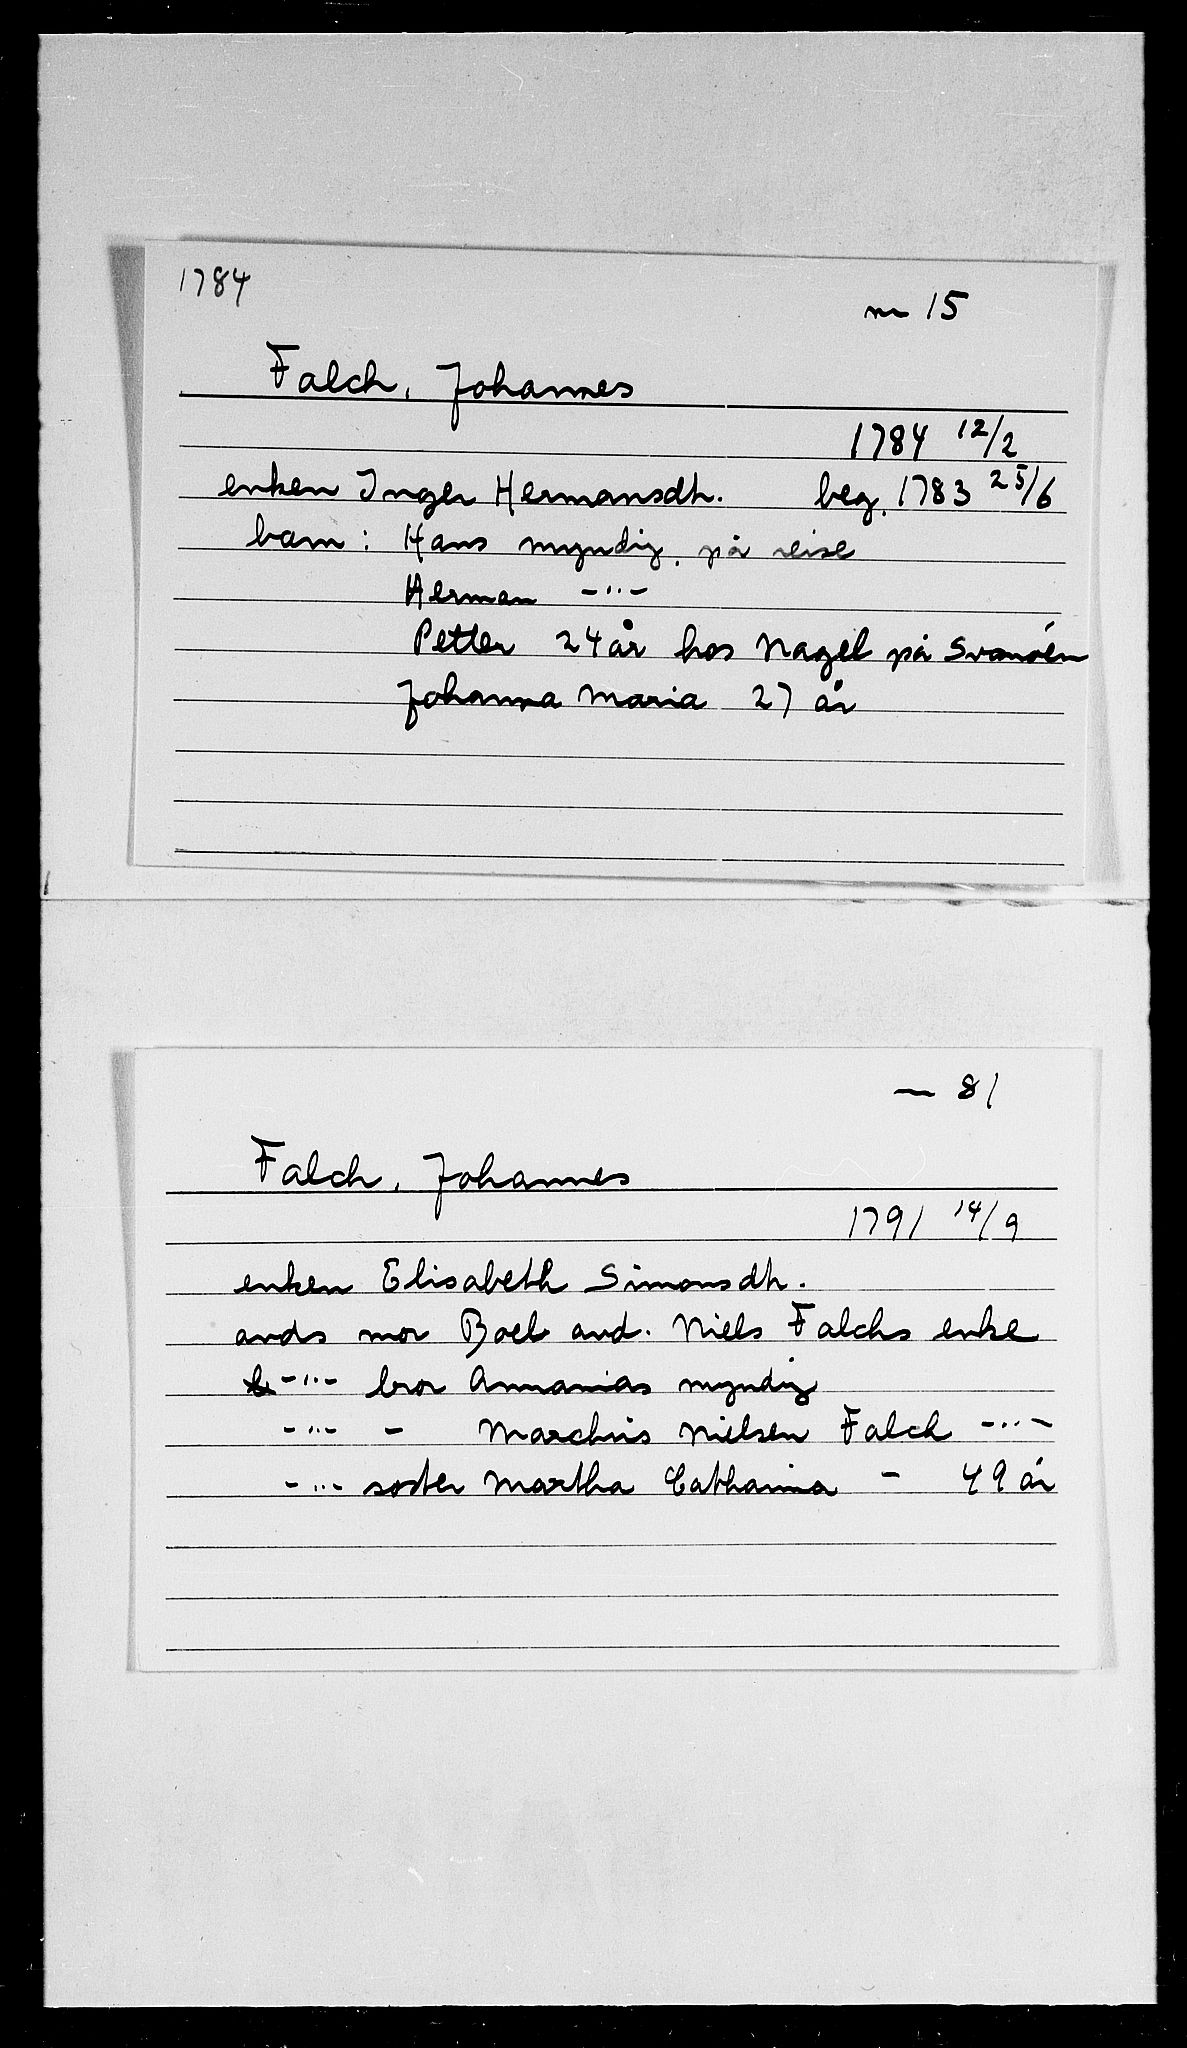 1784
15
Falch, Johannes
1784 12/2
enken Inger Hermansdtr. beg. 1783 25/6
barn : Hans myndig, på reise
Herman -"-
Petter 24 år hos Nagel på Svanøen
Johanna Maria 27 år
— 81
Falch, Johannes
1791 14/9
enken Elisabeth Simonsdtr.
avds mor Boel avd. Niels Falchs enke
-"- bror Annanias myndig
-"- - Marchus Nielsen Falch -"-
-"- søster Martha Catharina - 49 år